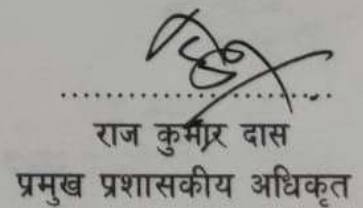 राज कुमार दास
प्रमुख प्रशासकीय अधिकृत